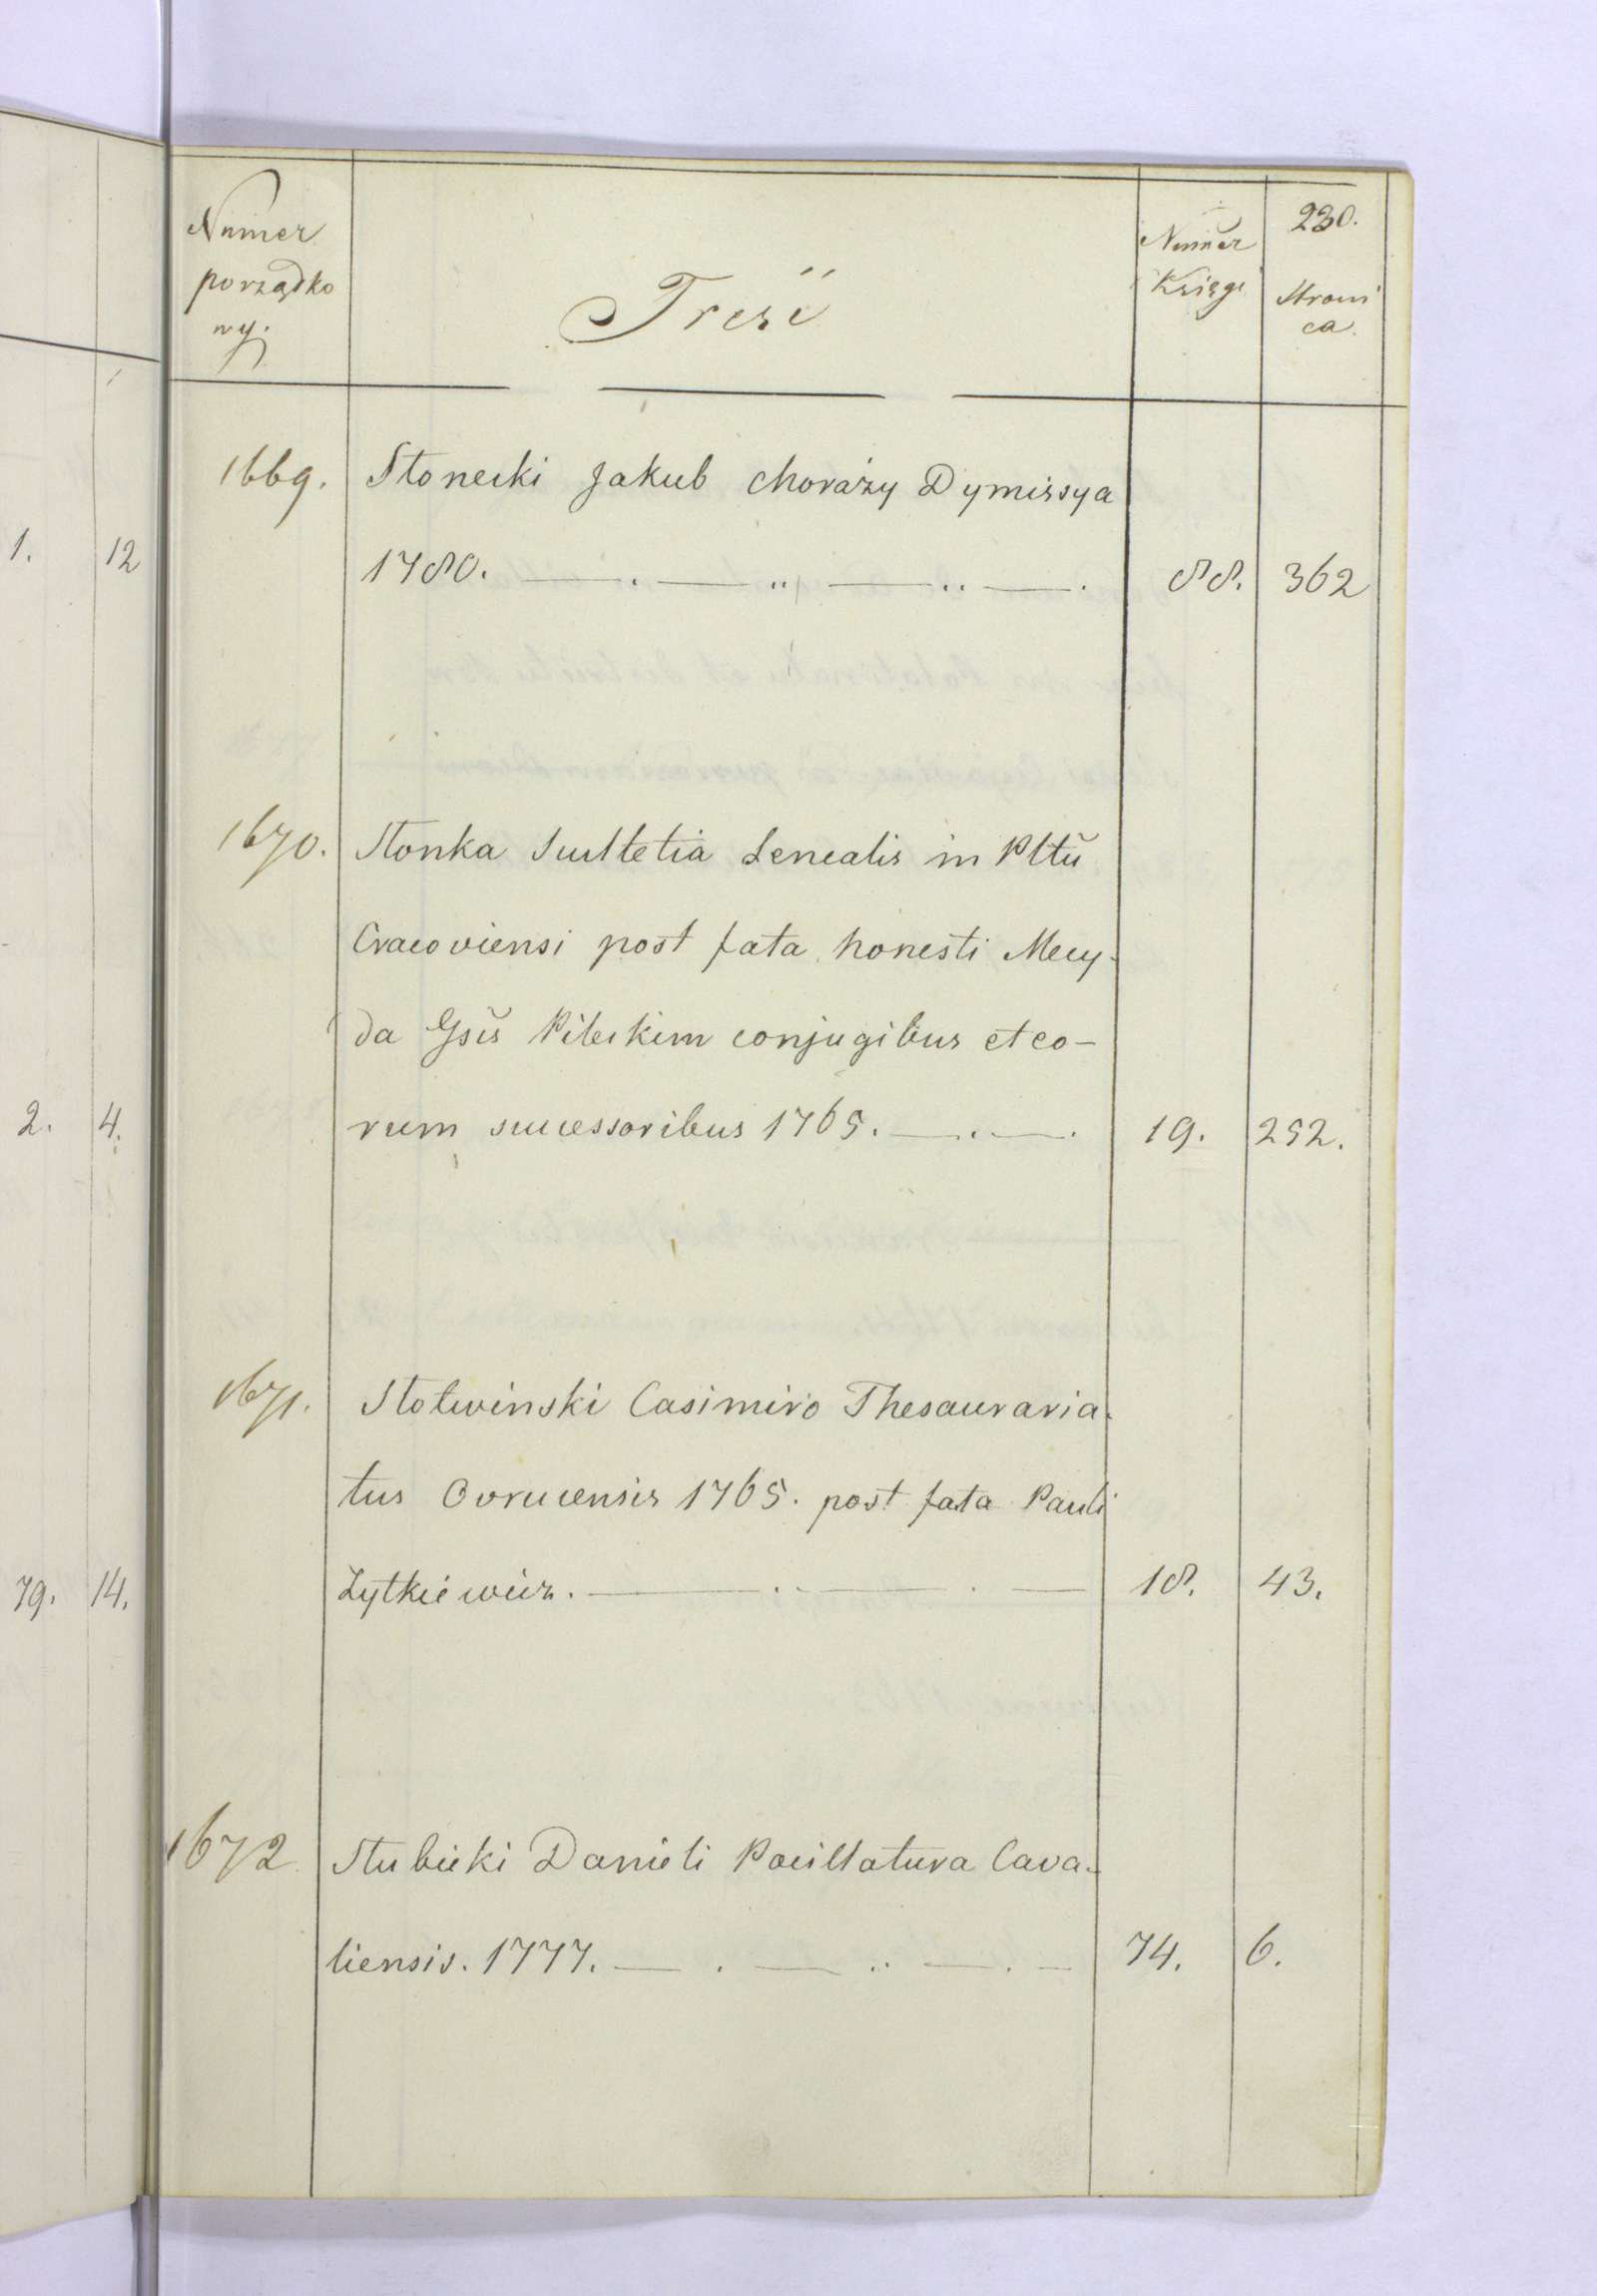 Numer
porządko
wy.
Treść
Numer
Księgi
230.
Stroni
ca.
1669. Słonecki Jakub chorąży Dymissya
1780. 88. 362
1670. Słonka Scultetia Lenealis in Pltũ
Cracoviensi post fata honesti Mecy-
da Gsĩs Pileckim conjugibus et eo-
rum successoribus 1765. 19. 252.
1671. Słotwinski Casimiro Thesauraria-
tus Ovrucensis 1765. post fata Pauli
Zytkiewicz. 18. 43.
1672 Słubicki Danieli Pocillatura Cava-
liensis. 1777. 74. 6.
1. 12
2. 4.
79. 14.